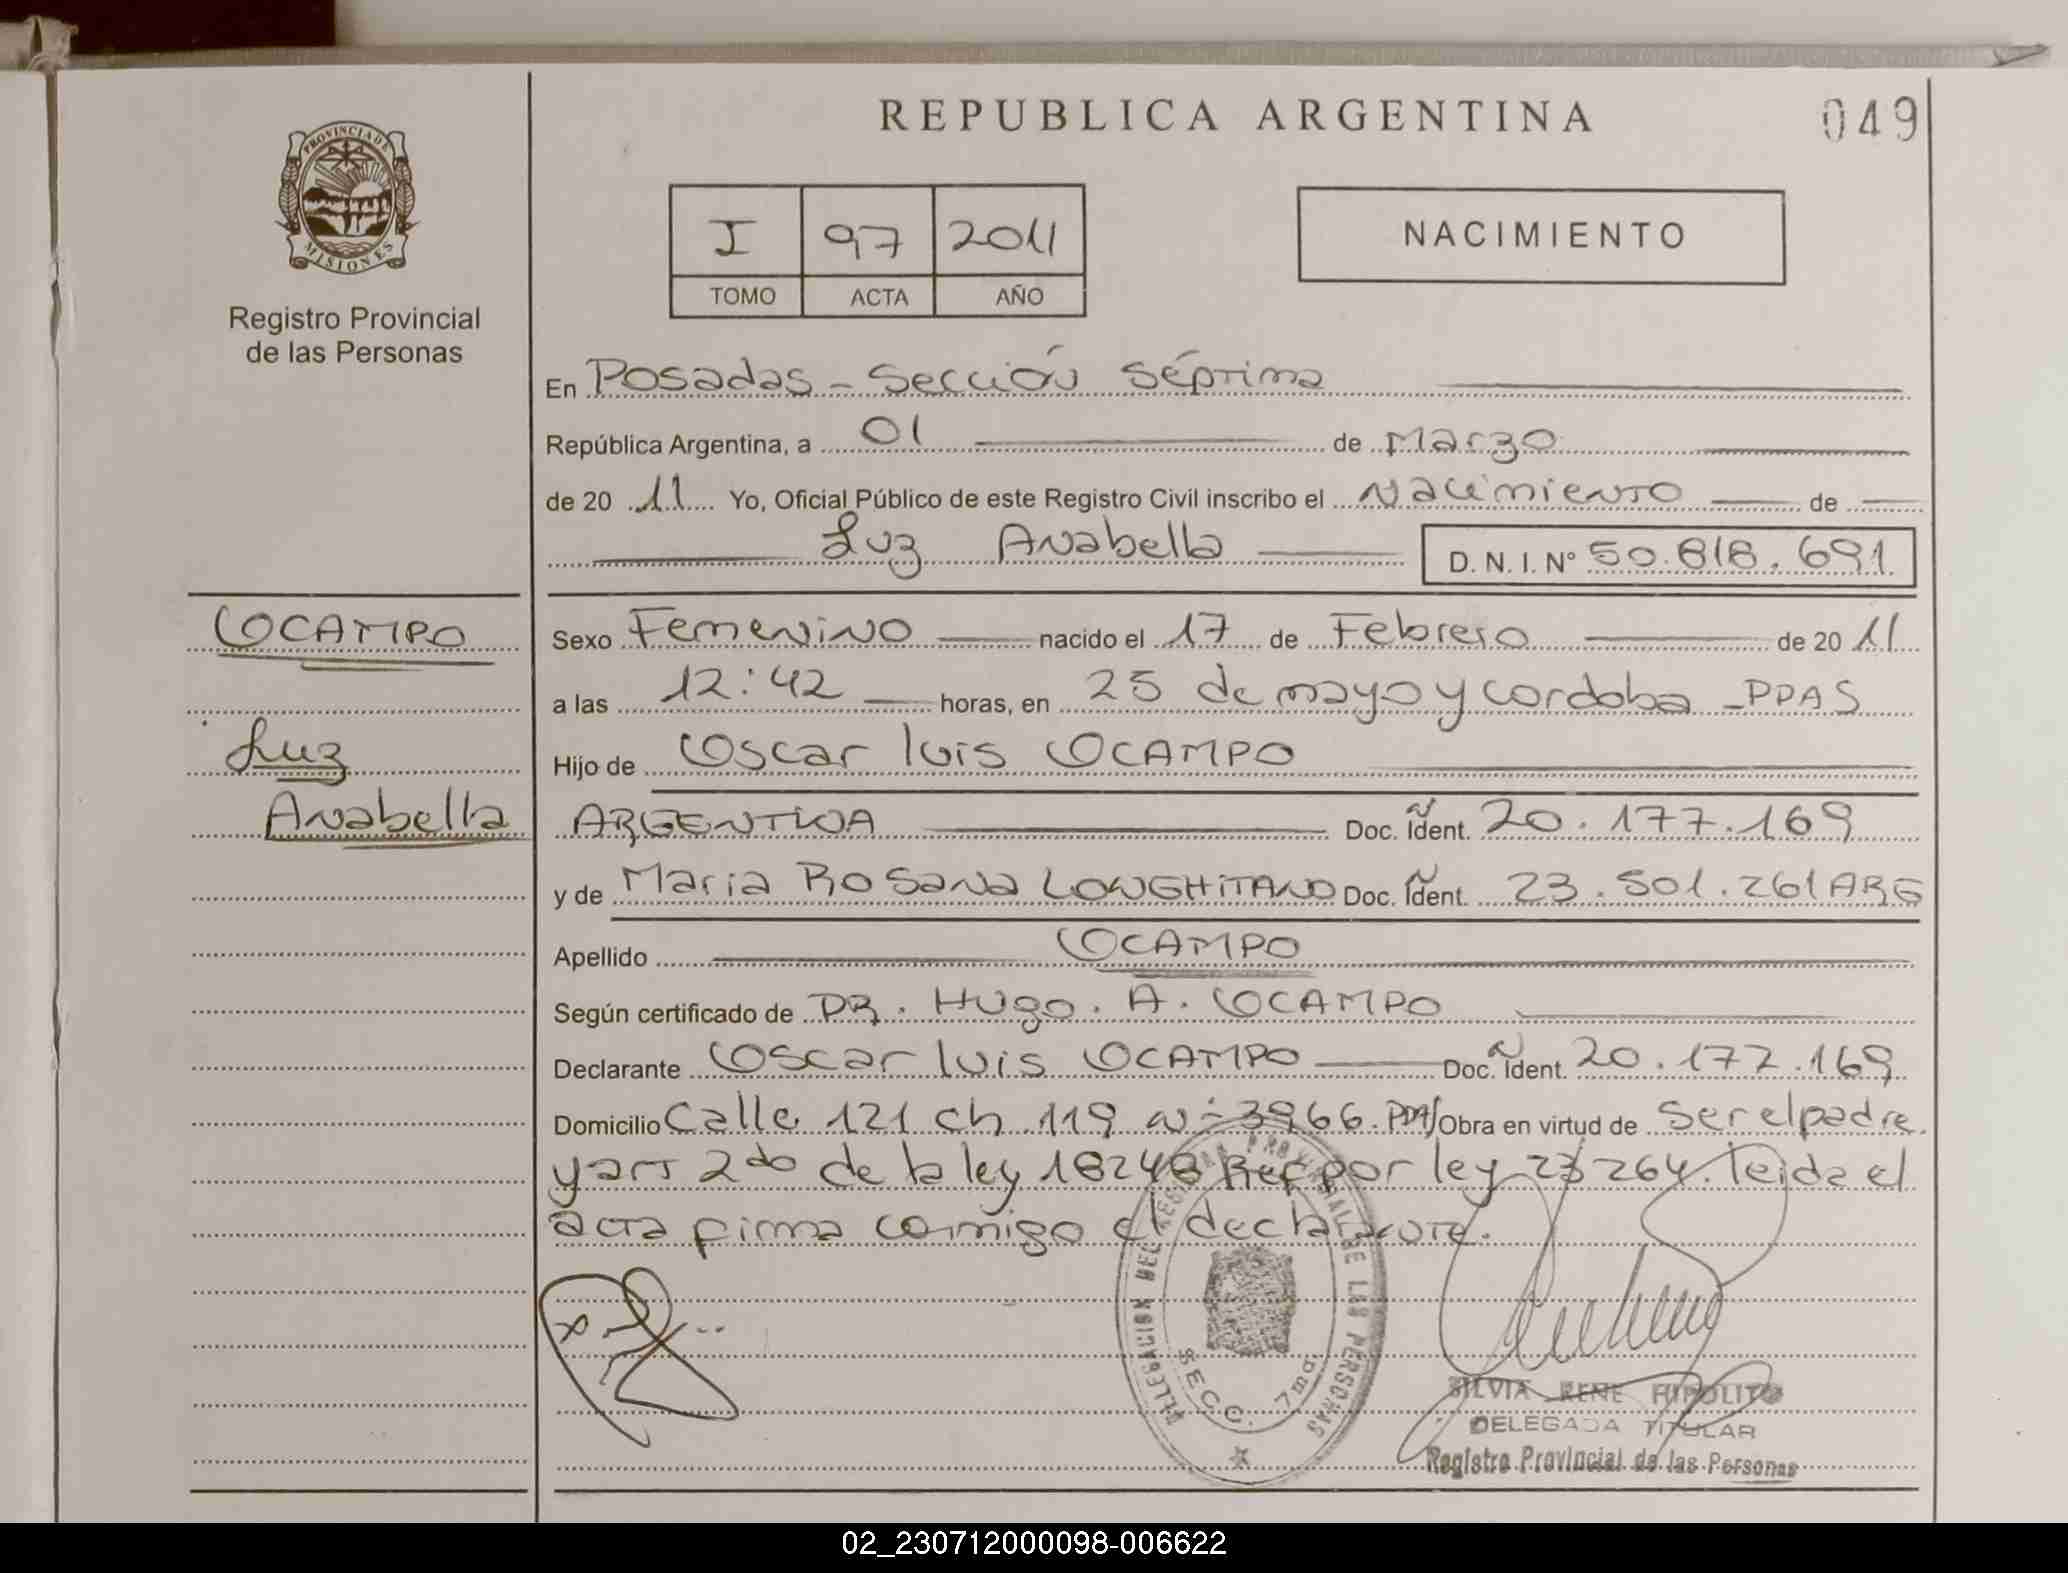 REPUBLICA ARGENTINA
049
PROVINCIA DE
MISIONES
Registro Provincial
de las Personas
I 97 2011
TOMO ACTA AÑO
NACIMIENTO
En Posadas - Sección Séptima
República Argentina, a 01 de Marzo
de 20 11 Yo, Oficial Público de este Registro Civil inscribo el Nacimiento de
Luz Anabella D. N. I. Nº 50.818.691
OCAMPO
Luz
Anabella
Sexo Femenino nacido el 17 de Febrero de 20 11
a las 12:42 horas, en 25 de mayo y cordoba - PDAS
Hijo de Oscar luis OCAMPO
ARGENTINA Doc. Ident. 20.177.169
y de Maria Rosana LONGHITANO Doc. Ident. 23.501.261 ARG
Apellido OCAMPO
Según certificado de DR. Hugo. A. OCAMPO
Declarante Oscar luis OCAMPO Doc. Ident. 20.177.169
Domicilio Calle 121 ch 119 N- 3966. Obra en virtud de ser el padre
y art 2do de la ley 18248 Ref por ley 23264. leida el
acta firma conmigo el declarante.
DELEGACION DEL REGISTRO PROVINCIAL DE LAS PERSONAS
SECC. 7ma
SILVIA RENE HIPOLITO
DELEGADA TITULAR
Registro Provincial de las Personas
02_230712000098-006622